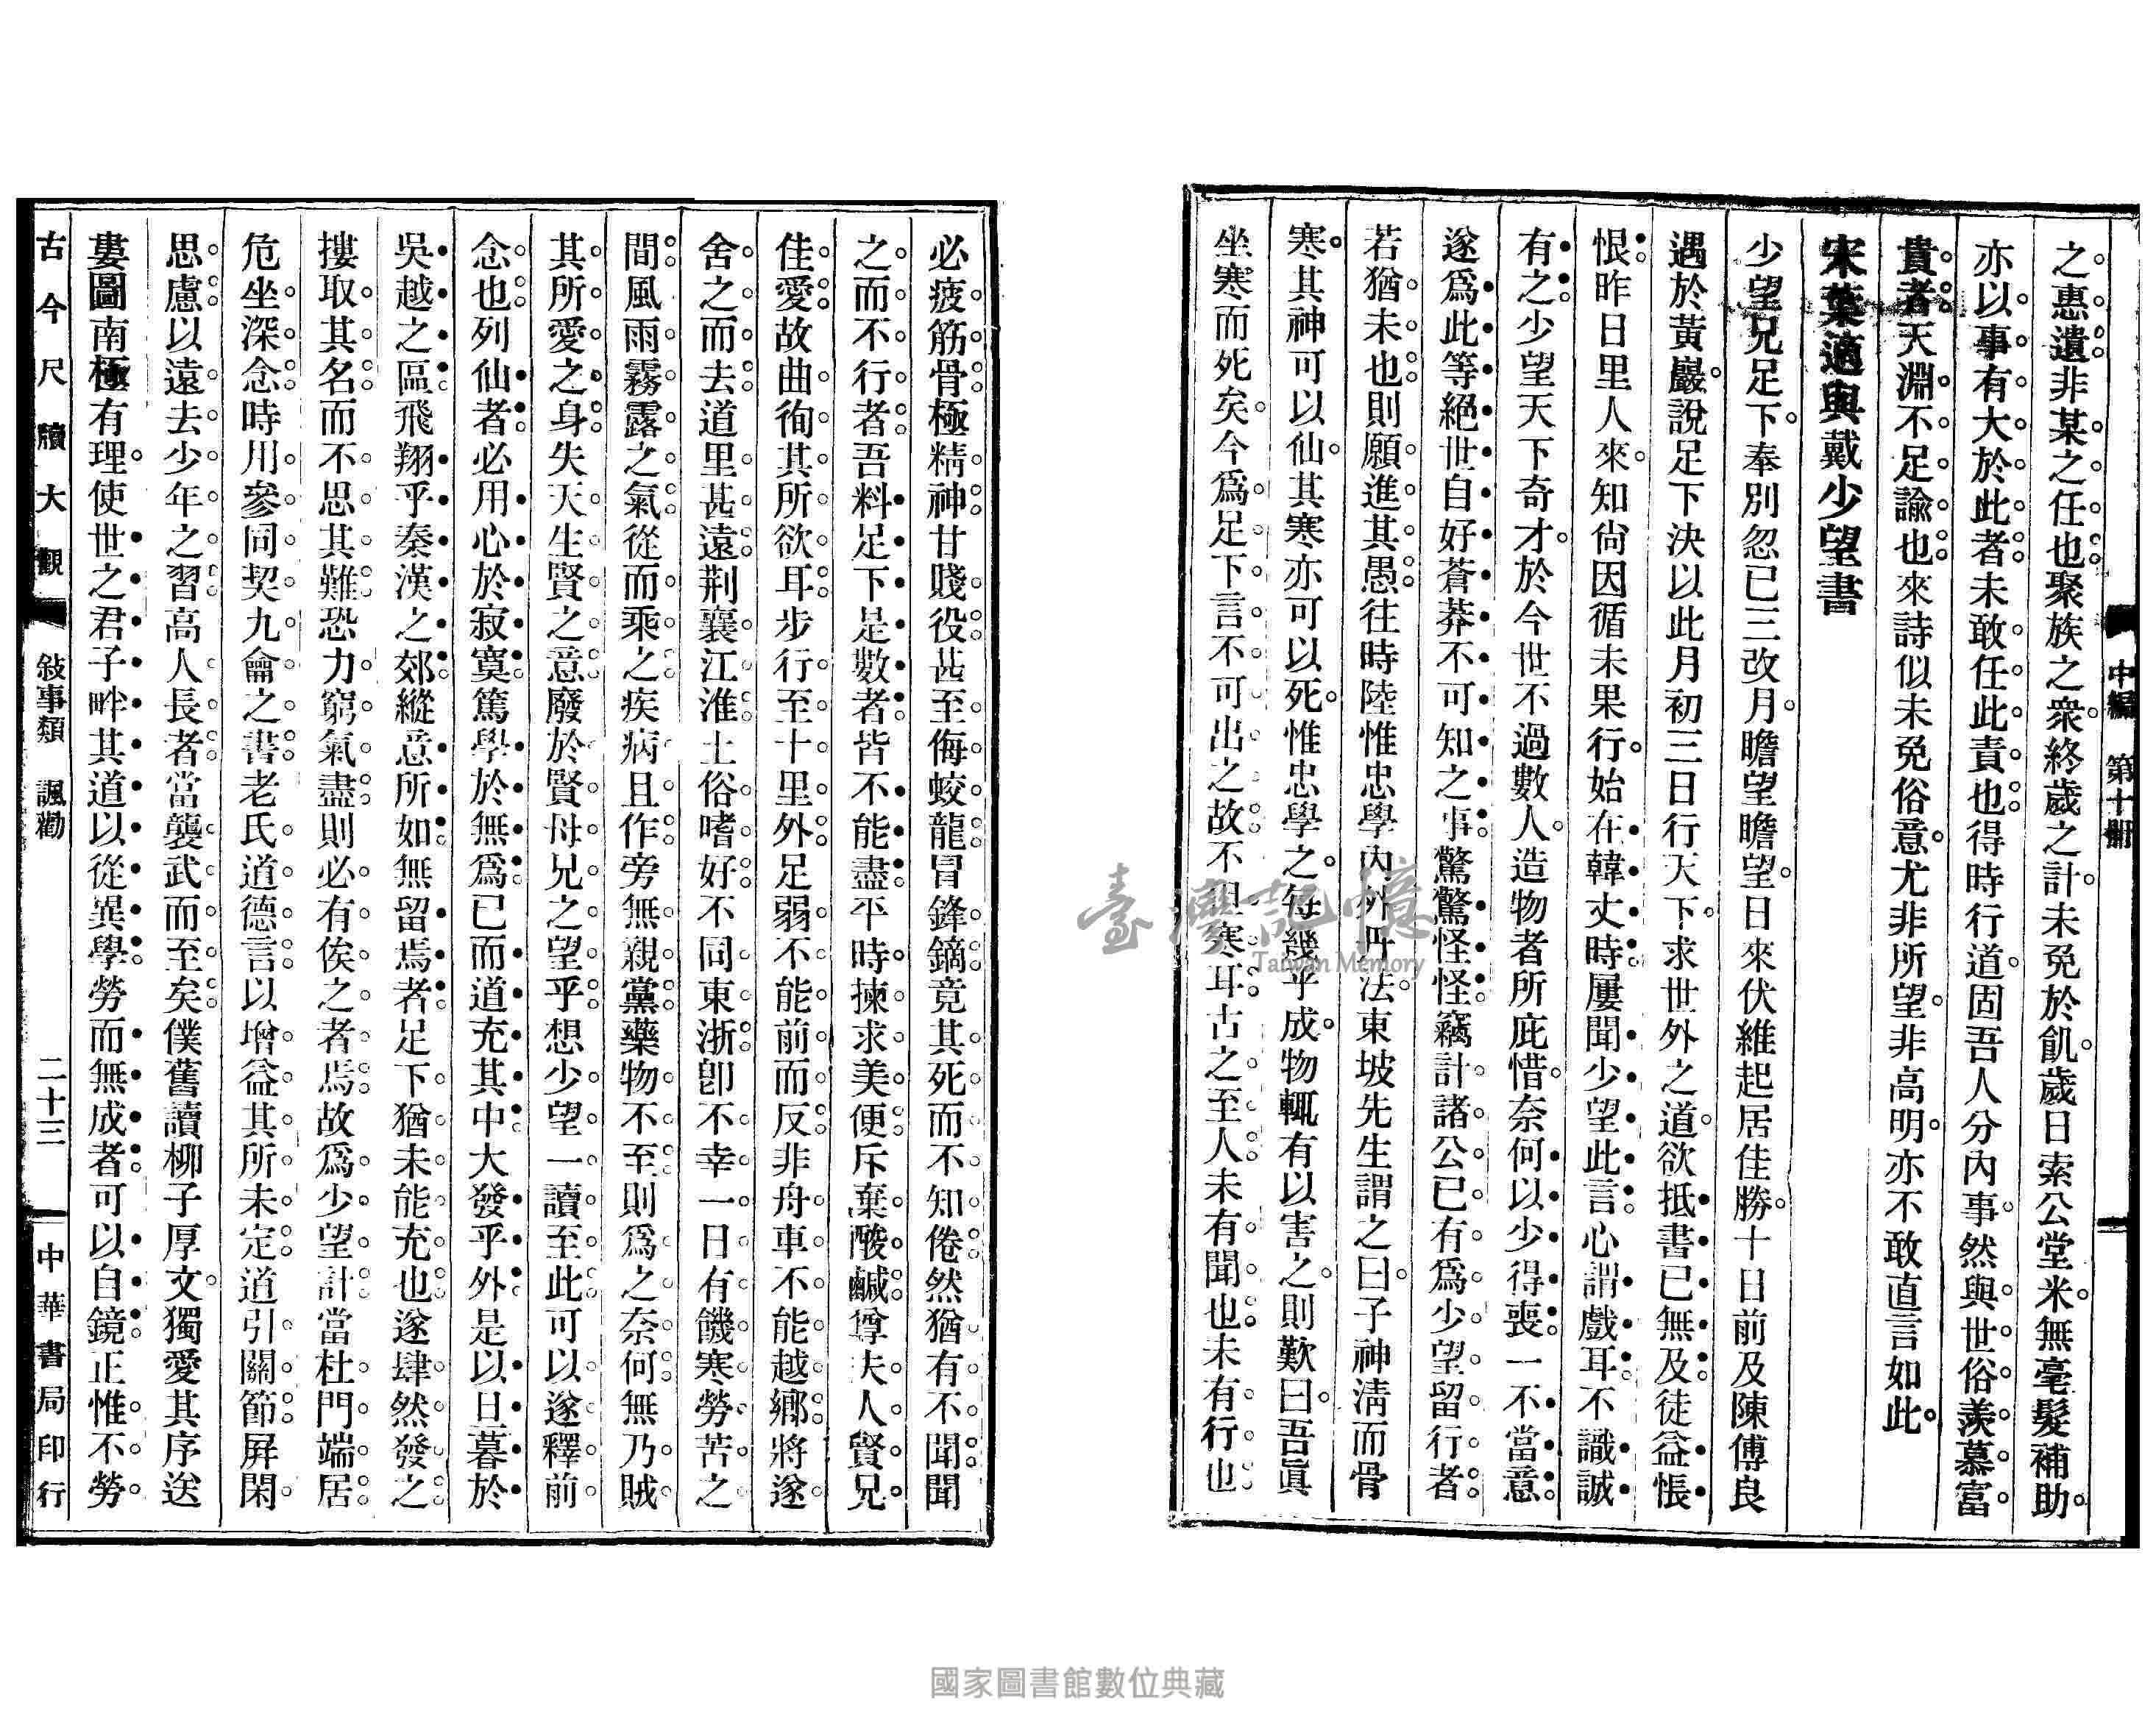 中編　第十冊
之惠遺非某之任也聚族之衆終歲之計未免於飢歲日索公堂米無毫髮補助
亦以事有大於此者未敢任此責也得時行道固吾人分內事然與世俗羨慕富
貴者天淵不足諭也來詩似未免俗意尤非所望非高明亦不敢直言如此
宋葉適與戴少望書
少望兄足下奉別忽已三改月瞻望瞻望日來伏維起居佳勝十日前及陳傅良
遇於黃巖說足下決以此月初三日行天下求世外之道欲抵書已無及徒益悵
恨昨日里人來知尙因循未果行始在韓丈時屢聞少望此言心謂戲耳不識誠
有之少望天下奇才於今世不過數人造物者所庇惜奈何以少得喪一不當意
遂爲此等絕世自好蒼莽不可知之事驚驚怪怪竊計諸公已有爲少望留行者
若猶未也則願進其愚往時陸惟忠學內外丹法東坡先生謂之曰子神淸而骨
寒其神可以仙其寒亦可以死惟忠學之每幾乎成物輒有以害之則歎曰吾眞
坐寒而死矣今爲足下言不可出之故不但寒耳古之至人未有聞也未有行也
必疲筋骨極精神甘賤役甚至侮蛟龍冒鋒鏑竟其死而不知倦然猶有不聞聞
之而不行者吾料足下是數者皆不能盡平時揀求美便斥棄酸鹹尊夫人賢兄
佳愛故曲徇其所欲耳步行至十里外足弱不能前而反非舟車不能越鄉將遂
舍之而去道里甚遠荆襄江淮土俗嗜好不同東浙卽不幸一日有饑寒勞苦之
間風雨霧露之氣從而乘之疾病且作旁無親黨藥物不至則爲之奈何無乃賊
其所愛之身失天生賢之意廢於賢母兄之望乎想少望一讀至此可以遂釋前
念也列仙者必用心於寂寞篤學於無爲已而道充其中大發乎外是以日暮於
吳越之區飛翔乎秦漢之郊縱意所如無留焉者足下猶未能充也遂肆然發之
摟取其名而不思其難恐力窮氣盡則必有俟之者焉故爲少望計當杜門端居
危坐深念時用參同契九龠之書老氏道德言以增益其所未定道引關節屛閑
思慮以遠去少年之習高人長者當襲武而至矣僕舊讀柳子厚文獨愛其序送
婁圖南極有理使世之君子畔其道以從異學勞而無成者可以自鏡正惟不勞
古今尺牘大觀　敍事類　諷勸　二十三　中華書局印行
臺灣記憶
Taiwan Memory
國家圖書館數位典藏